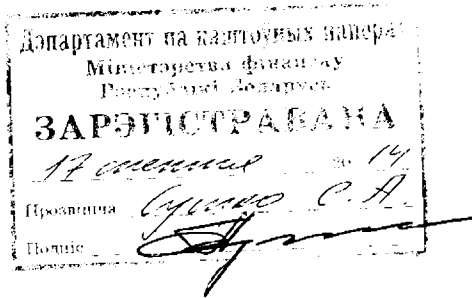 Дэпартамент па каштоўных паперах
Міністэрства фінансаў
Рэспублікі Беларусь
ЗАРЭГІСТРАВАНА
17 20 14
Прозвішча Сушко С.А.
Подпіс